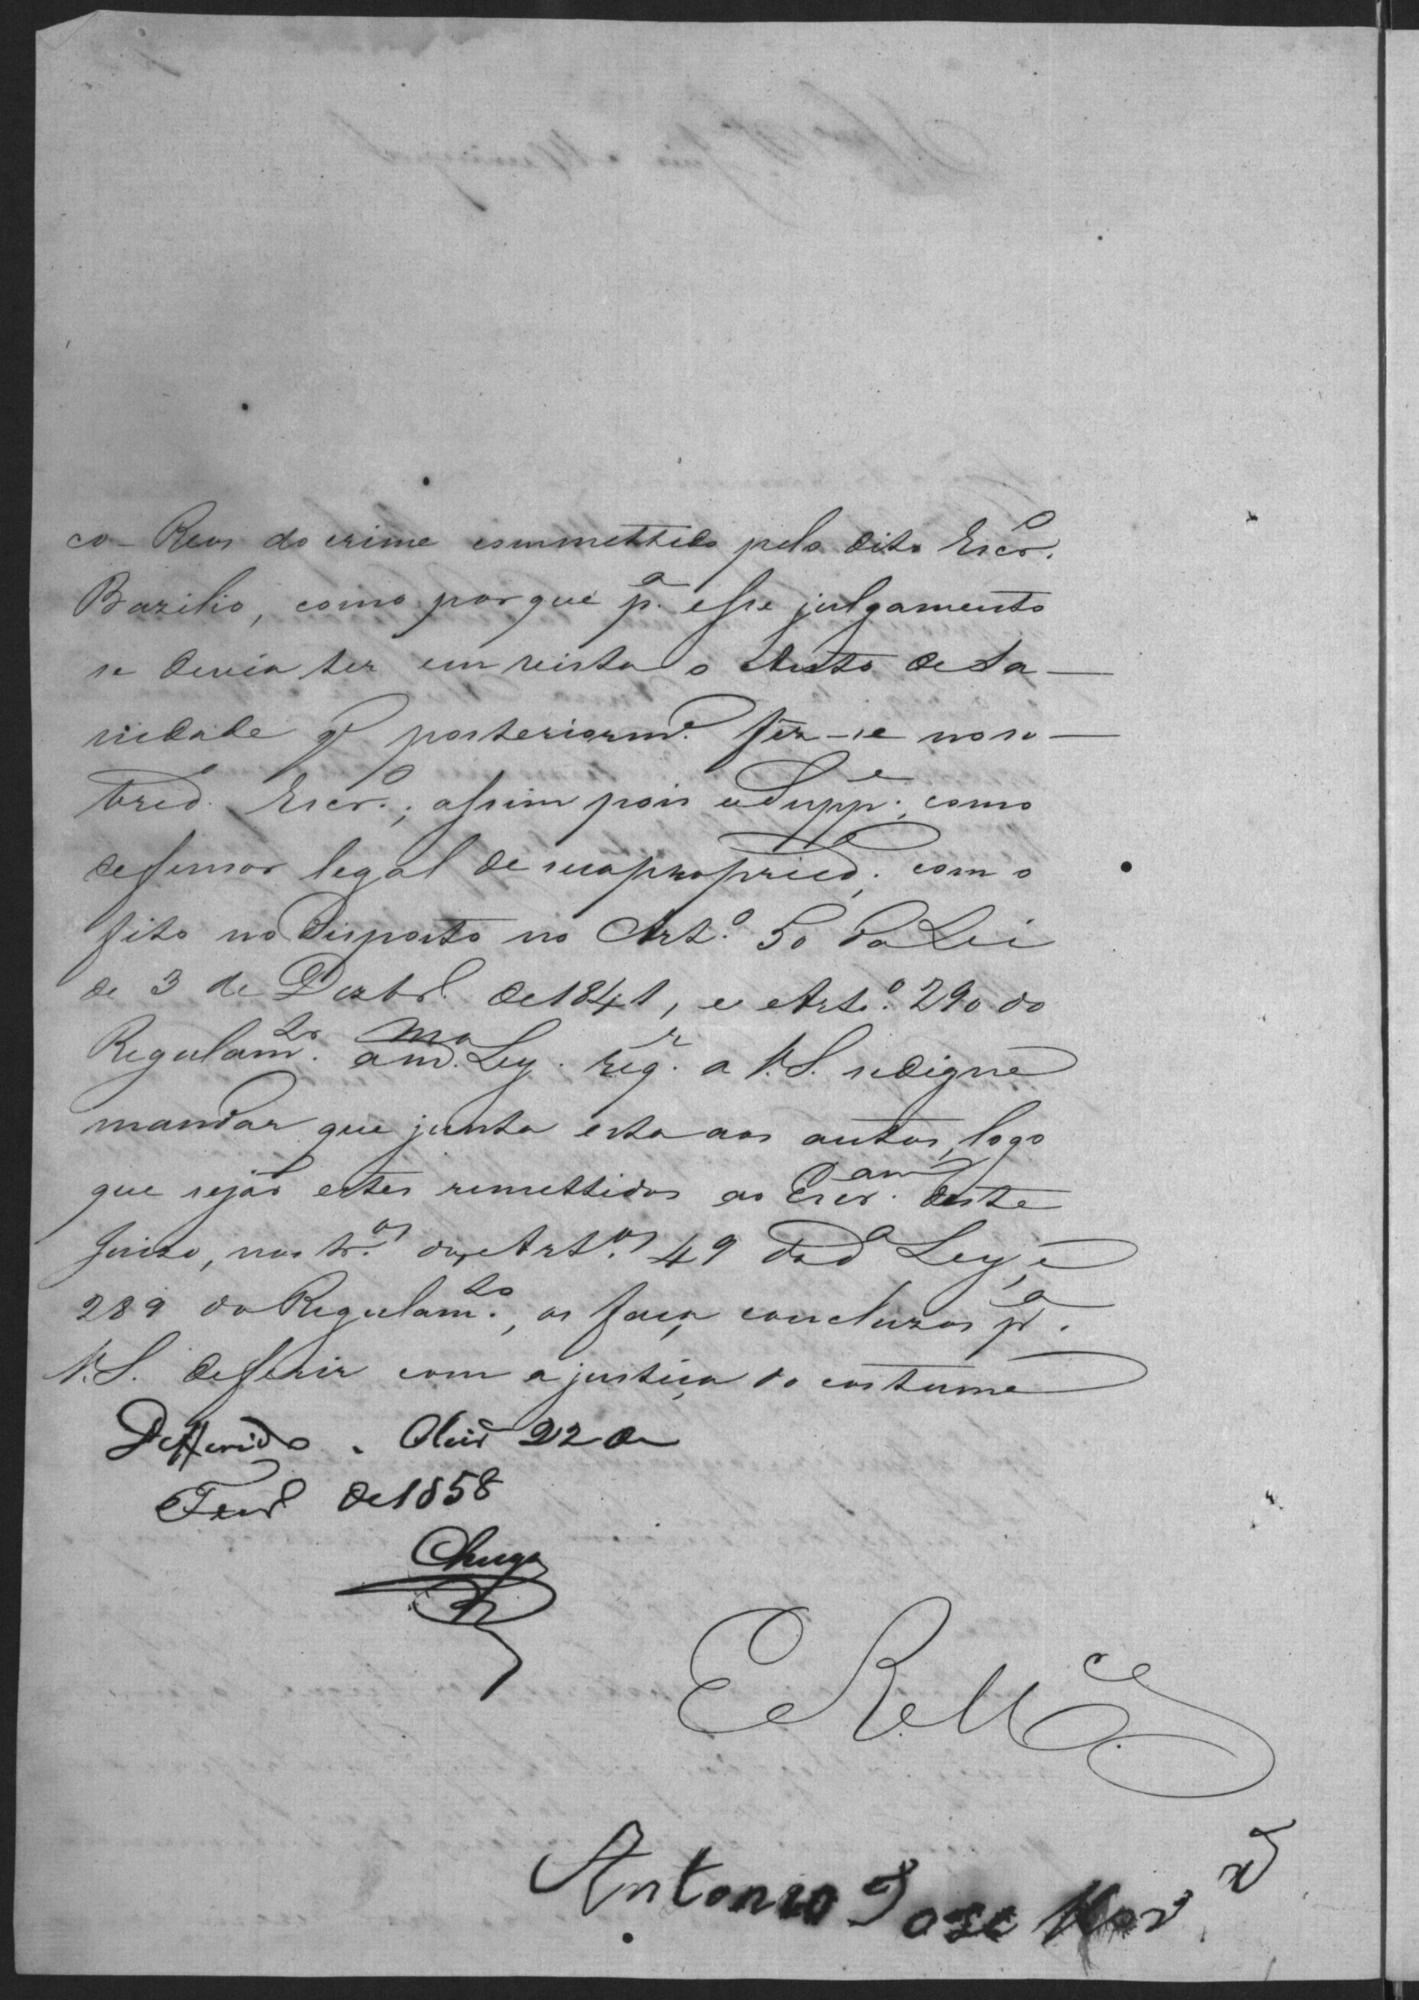 co-Reos do crime commettido pelo dito Escr.o
Bazilio, como porque p.a esse julgamento
se devia ter em vista o Auto de Sa-
nidade q' posteriorm.e fez-se no so-
bred.o Escr.o; assim pois o Supp.e, como
defensor legal de sua propried.e, com o
fito no disposto no Art.o 50 da Lei
de 3 de Dezbr.o de 1841, e Art.o 290 do
Regulam.to a m.ma Ley. req.r a V.S. se digne
mandar que junta esta aos autos, logo
que sejão estes remettidos ao Escr.am deste
Juizo, nos tr.os dos Art.os 49 da d.a Ley, e
289 do Regulam.to, os faça concluzos p.a
V.S. deferir com a justiça do costume
Defferido. 22 de
Fevr.o de 1858
E. R. M.ce
Antonio Jose